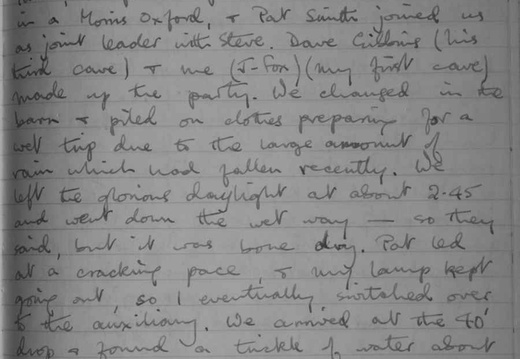 in a Morris Oxford, & Pat Smith joined us
as joint leader with Steve. Dave Gibbons (his
third cave) & me (J-Fox) (my first cave)
made up the party. We changed in the
barn & piled on clothes preparing for a
wet trip due to the large amount of
rain which had fallen recently. We
left the glorious daylight at about 2.45
and went down the wet way — so they
said, but it was bone dry. Pat led
at a cracking pace, & my lamp kept
going out, so I eventually switched over
to the auxiliary. We arrived at the 40'
drop & found a trickle of water about